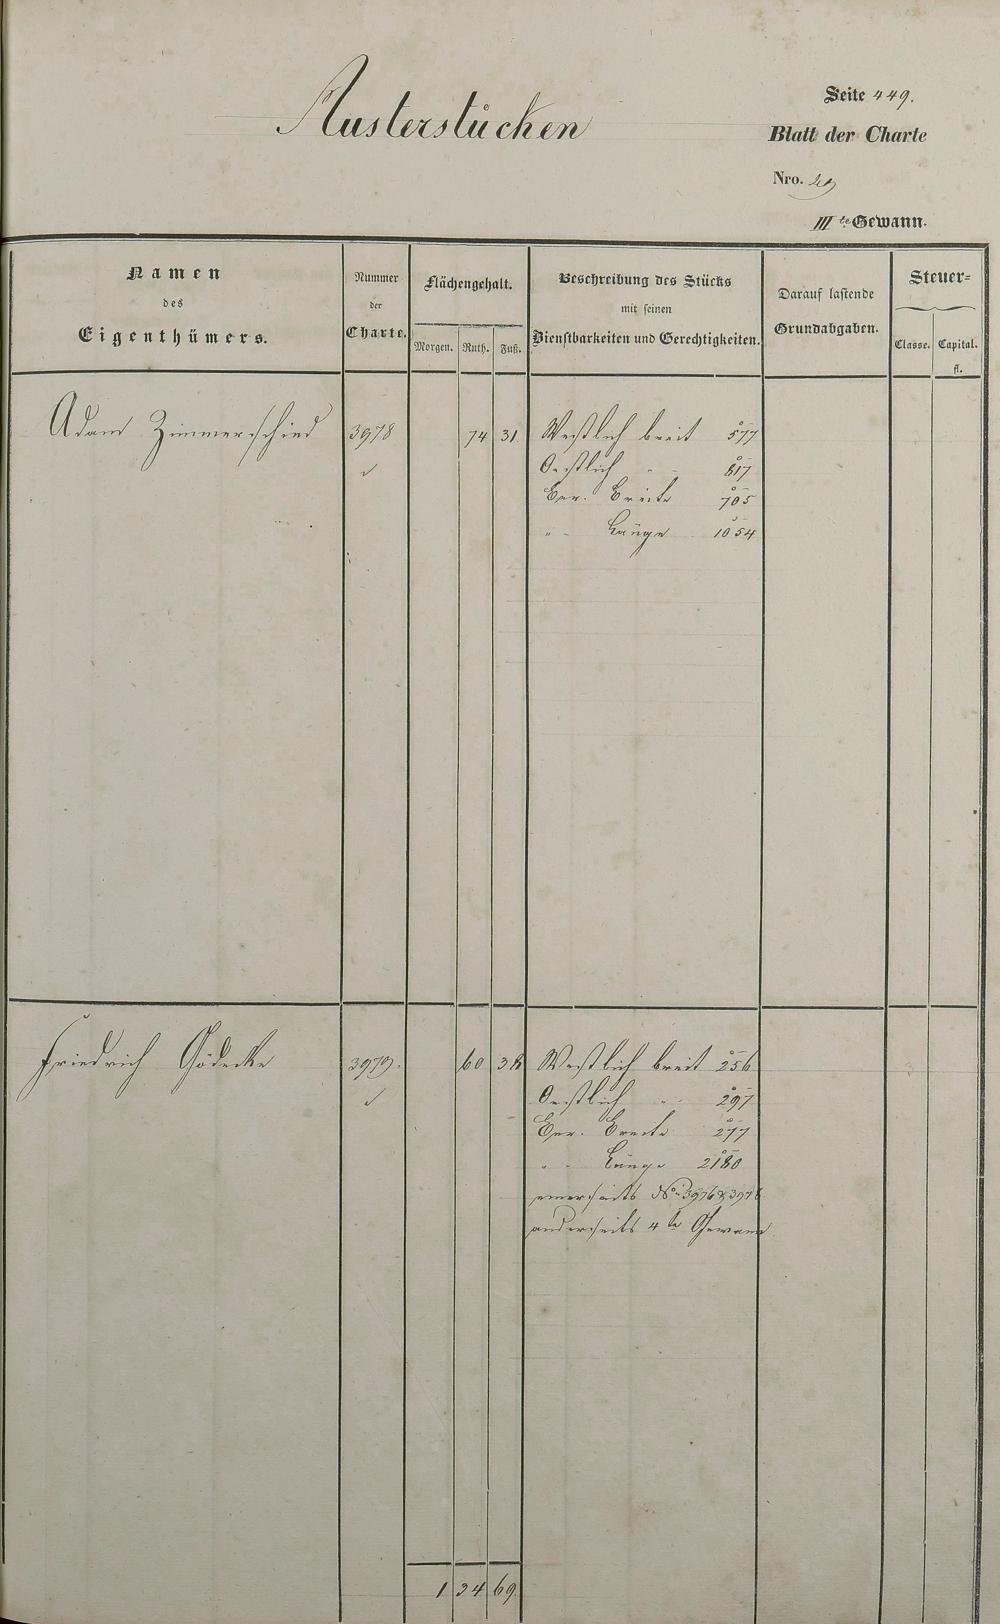 Austerstücken
Seite 449.
Blatt der Charte
Nro. 29
IIIte Gewann.
Namen
des
Eigenthümers.
Nummer
der
Charte.
Flächengehalt.
Morgen. Ruth. Fuß.
Beschreibung des Stücks
mit seinen
Dienstbarkeiten und Gerechtigkeiten.
Darauf lastende
Grundabgaben.
Steuer=
Classe. Capital.
fl.
Adam Zimmerschied 3978 74 31 Westlich breit 577
Oestlich " 817
Ger. Breite 705
" Länge 1054
Friedrich Gödecke 3979. 60 38 Westlich breit 256
Oestlich " 297
Ger. Breite 277
" Länge 2180
einerseits No 3976 & 3978
anderseits 4te Gewann
1 34 69